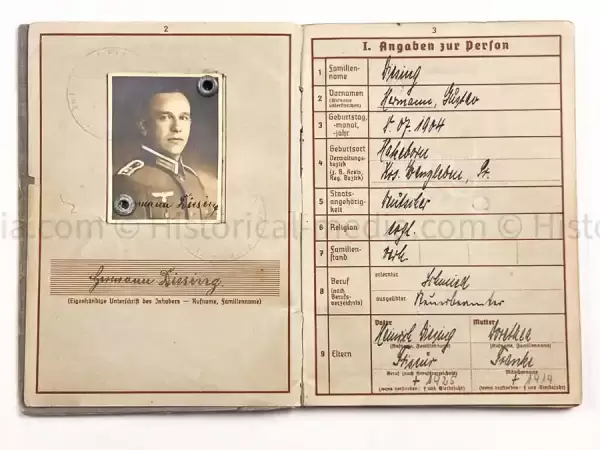 2
Hermann Diesing
Hermann Diesing.
(Eigenhändige Unterschrift des Inhabers — Rufname, Familienname)
3
I. Angaben zur Person
1 Familien-
name
Diesing
2 Vornamen
(Rufname
unterstreichen)
Hermann, Gustav
3 Geburtstag,
-monat,
-jahr
07. 1904
4 Geburtsort
Verwaltungs-
bezirk
(z. B. Kreis,
Reg. Bezirk)
Hakeborn
Krs. Wanzleben,
5 Staats-
angehörig-
keit
Deutscher
6 Religion
evgl.
7 Familien-
stand
verh.
8 Beruf
(nach
Berufs-
verzeichnis)
erlernter
Schmied
ausgeübter
9 Eltern
Vater
Heinrich Diesing
(Rufname, Familienname)
Beruf (nach Berufsverzeichnis)
+ 1925
(wenn verstorben: † und Sterbejahr)
Mutter
Dorothea
(Rufname, Familienname)
Franke
Mädchenname
+ 1919
(wenn verstorben: † und Sterbejahr)
ia.com © Historical-media.com © Histo